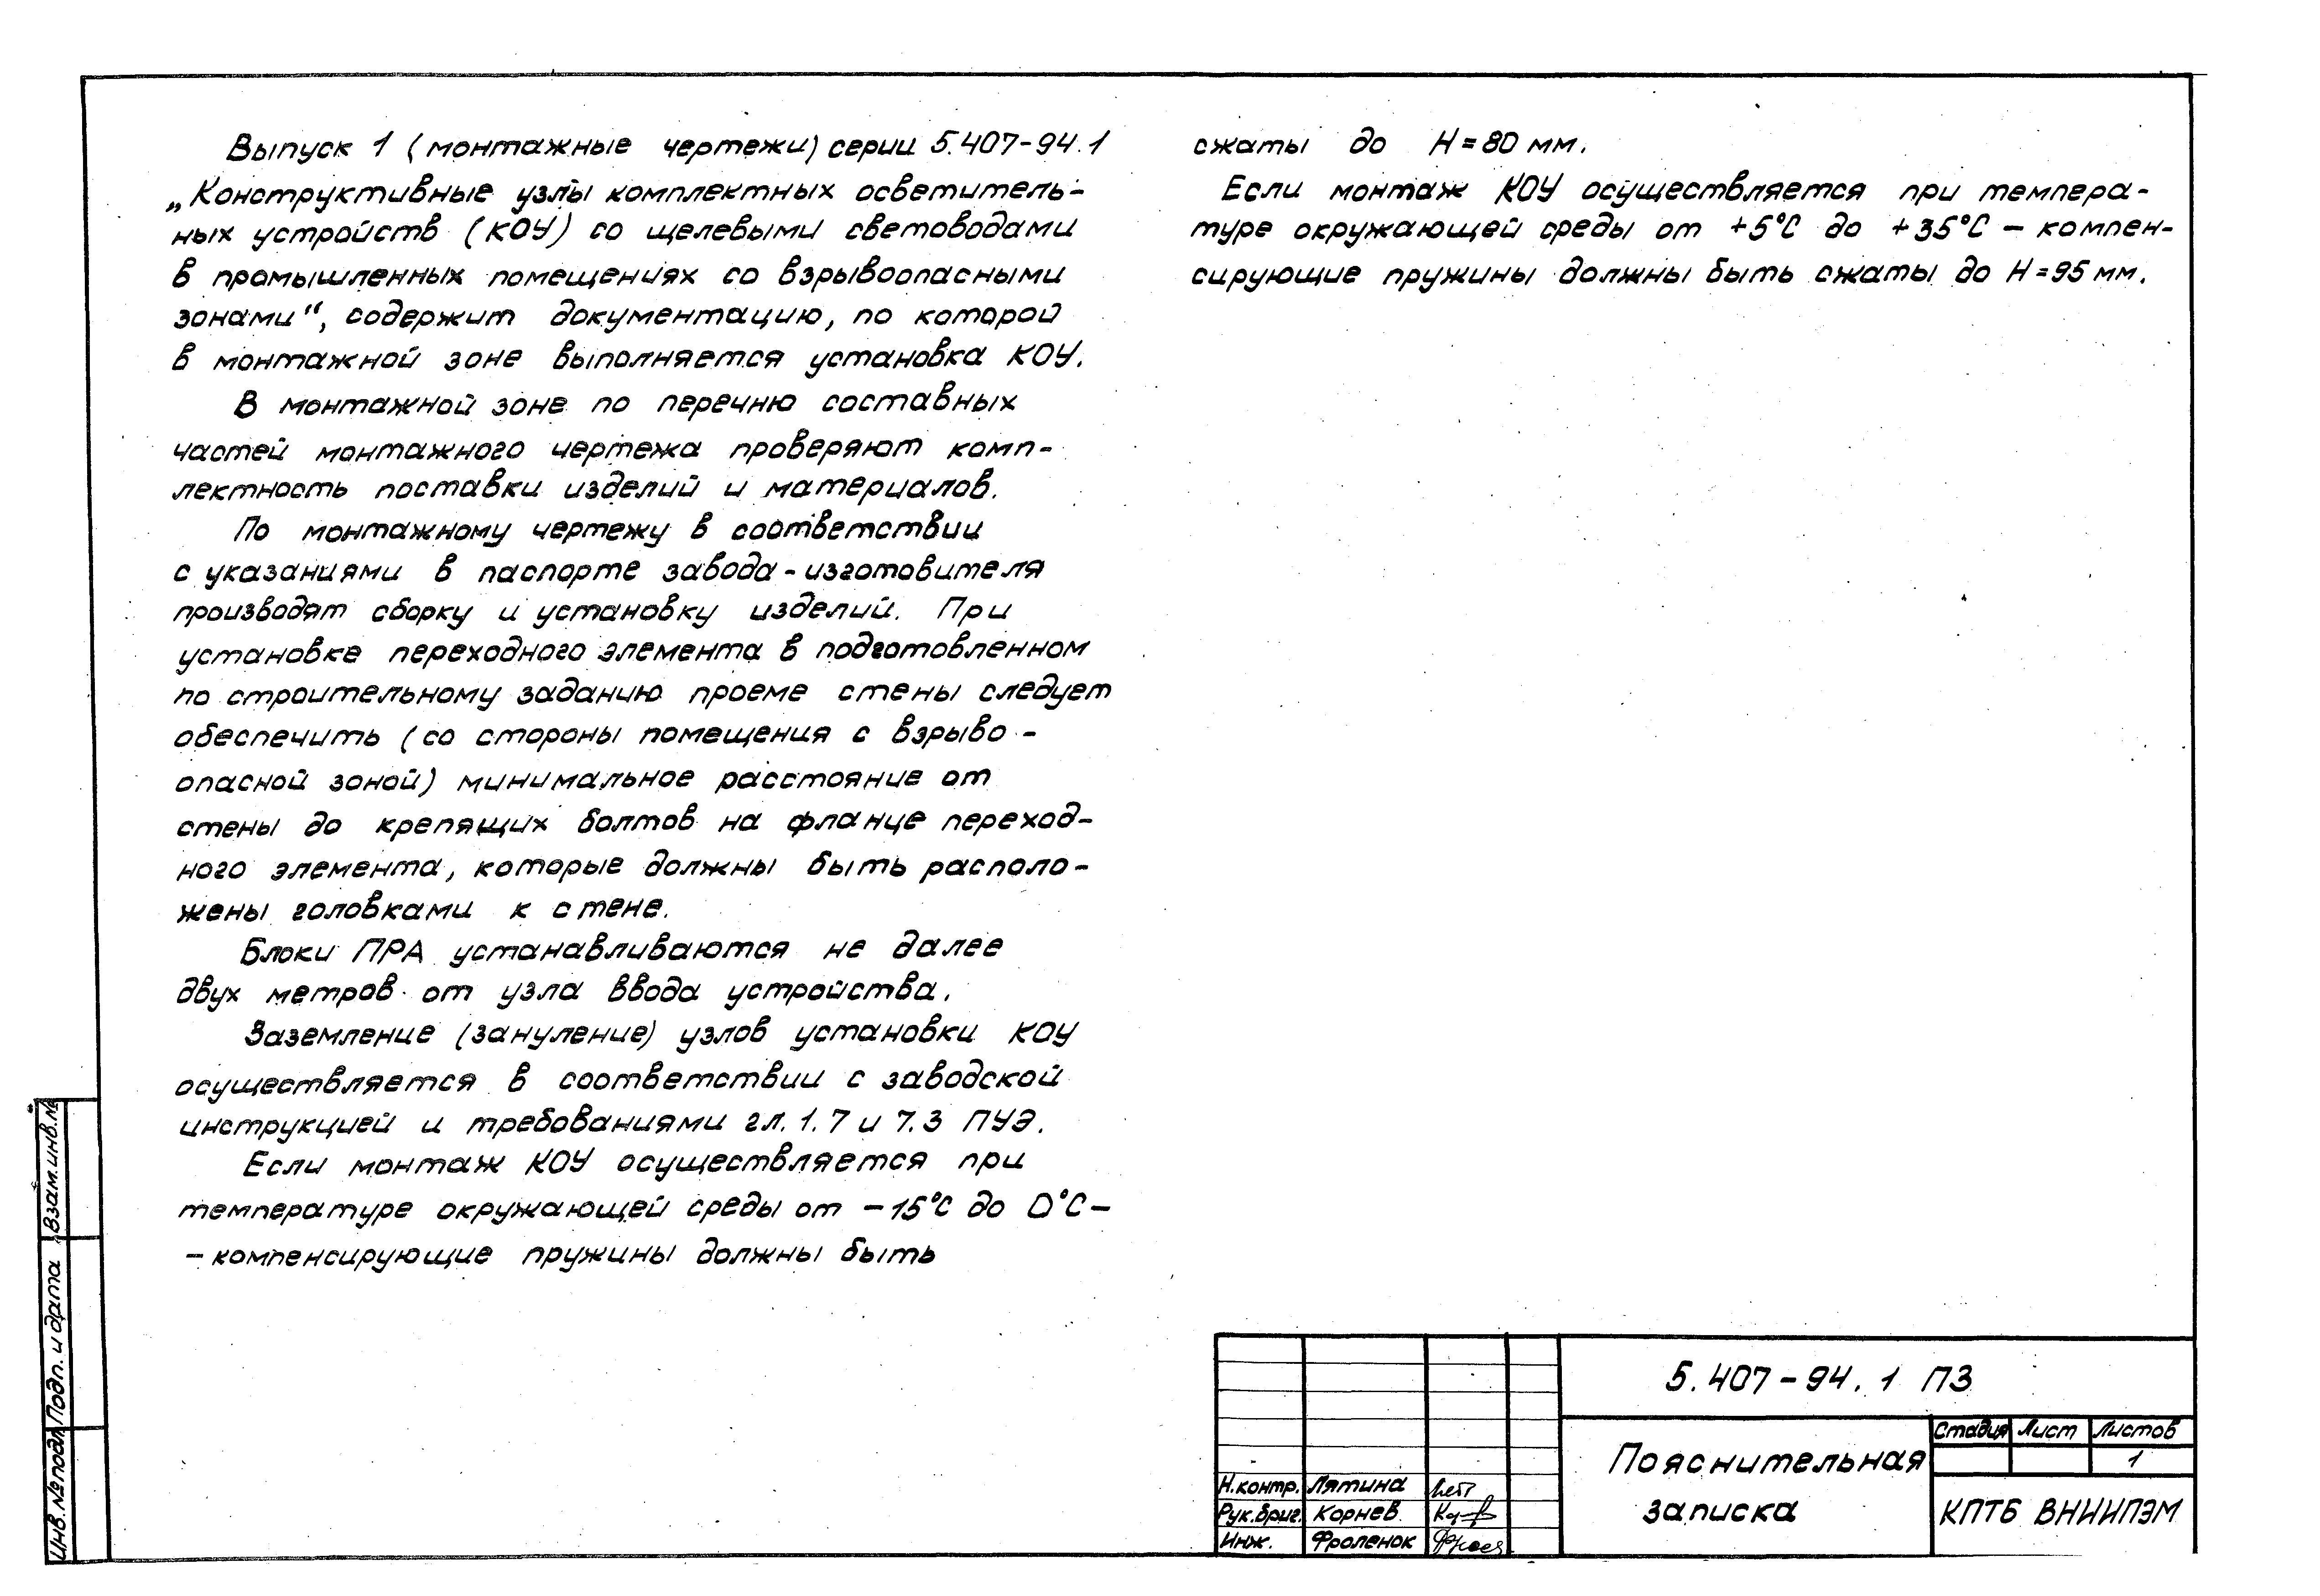 Выпуск 1 (монтажные чертежи) серии 5.407-94.1
„Конструктивные узлы комплектных осветитель-
ных устройств (КОУ) со щелевыми световодами
в промышленных помещениях со взрывоопасными
зонами“, содержит документацию, по которой
в монтажной зоне выполняется установка КОУ.
В монтажной зоне по перечню составных
частей монтажного чертежа проверяют комп-
лектность поставки изделий и материалов.
По монтажному чертежу в соответствии
с указаниями в паспорте завода-изготовителя
производят сборку и установку изделий. При
установке переходного элемента в подготовленном
по строительному заданию проеме стены следует
обеспечить (со стороны помещения с взрыво-
опасной зоной) минимальное расстояние от
стены до крепящих болтов на фланце переход-
ного элемента, которые должны быть располо-
жены головками к стене.
Блоки ПРА устанавливаются не далее
двух метров от узла ввода устройства.
Заземление (зануление) узлов установки КОУ
осуществляется в соответствии с заводской
инструкцией и требованиями гл. 1.7 и 7.3 ПУЭ.
Если монтаж КОУ осуществляется при
температуре окружающей среды от -15°С до 0°С-
- компенсирующие пружины должны быть
сжаты до Н=80 мм.
Если монтаж КОУ осуществляется при темпера-
туре окружающей среды от +5°С до +35°С - компен-
сирующие пружины должны быть сжаты до Н=95 мм.
Взам.инв.№
Подп. и дата
Инв. № подл
5.407-94.1 ПЗ
Пояснительная
записка
Стадия Лист Листов
1
КПТБ ВНИИПЭМ
Н.контр. Лятина
Рук.бриг. Корнев
Инж. Фроленок